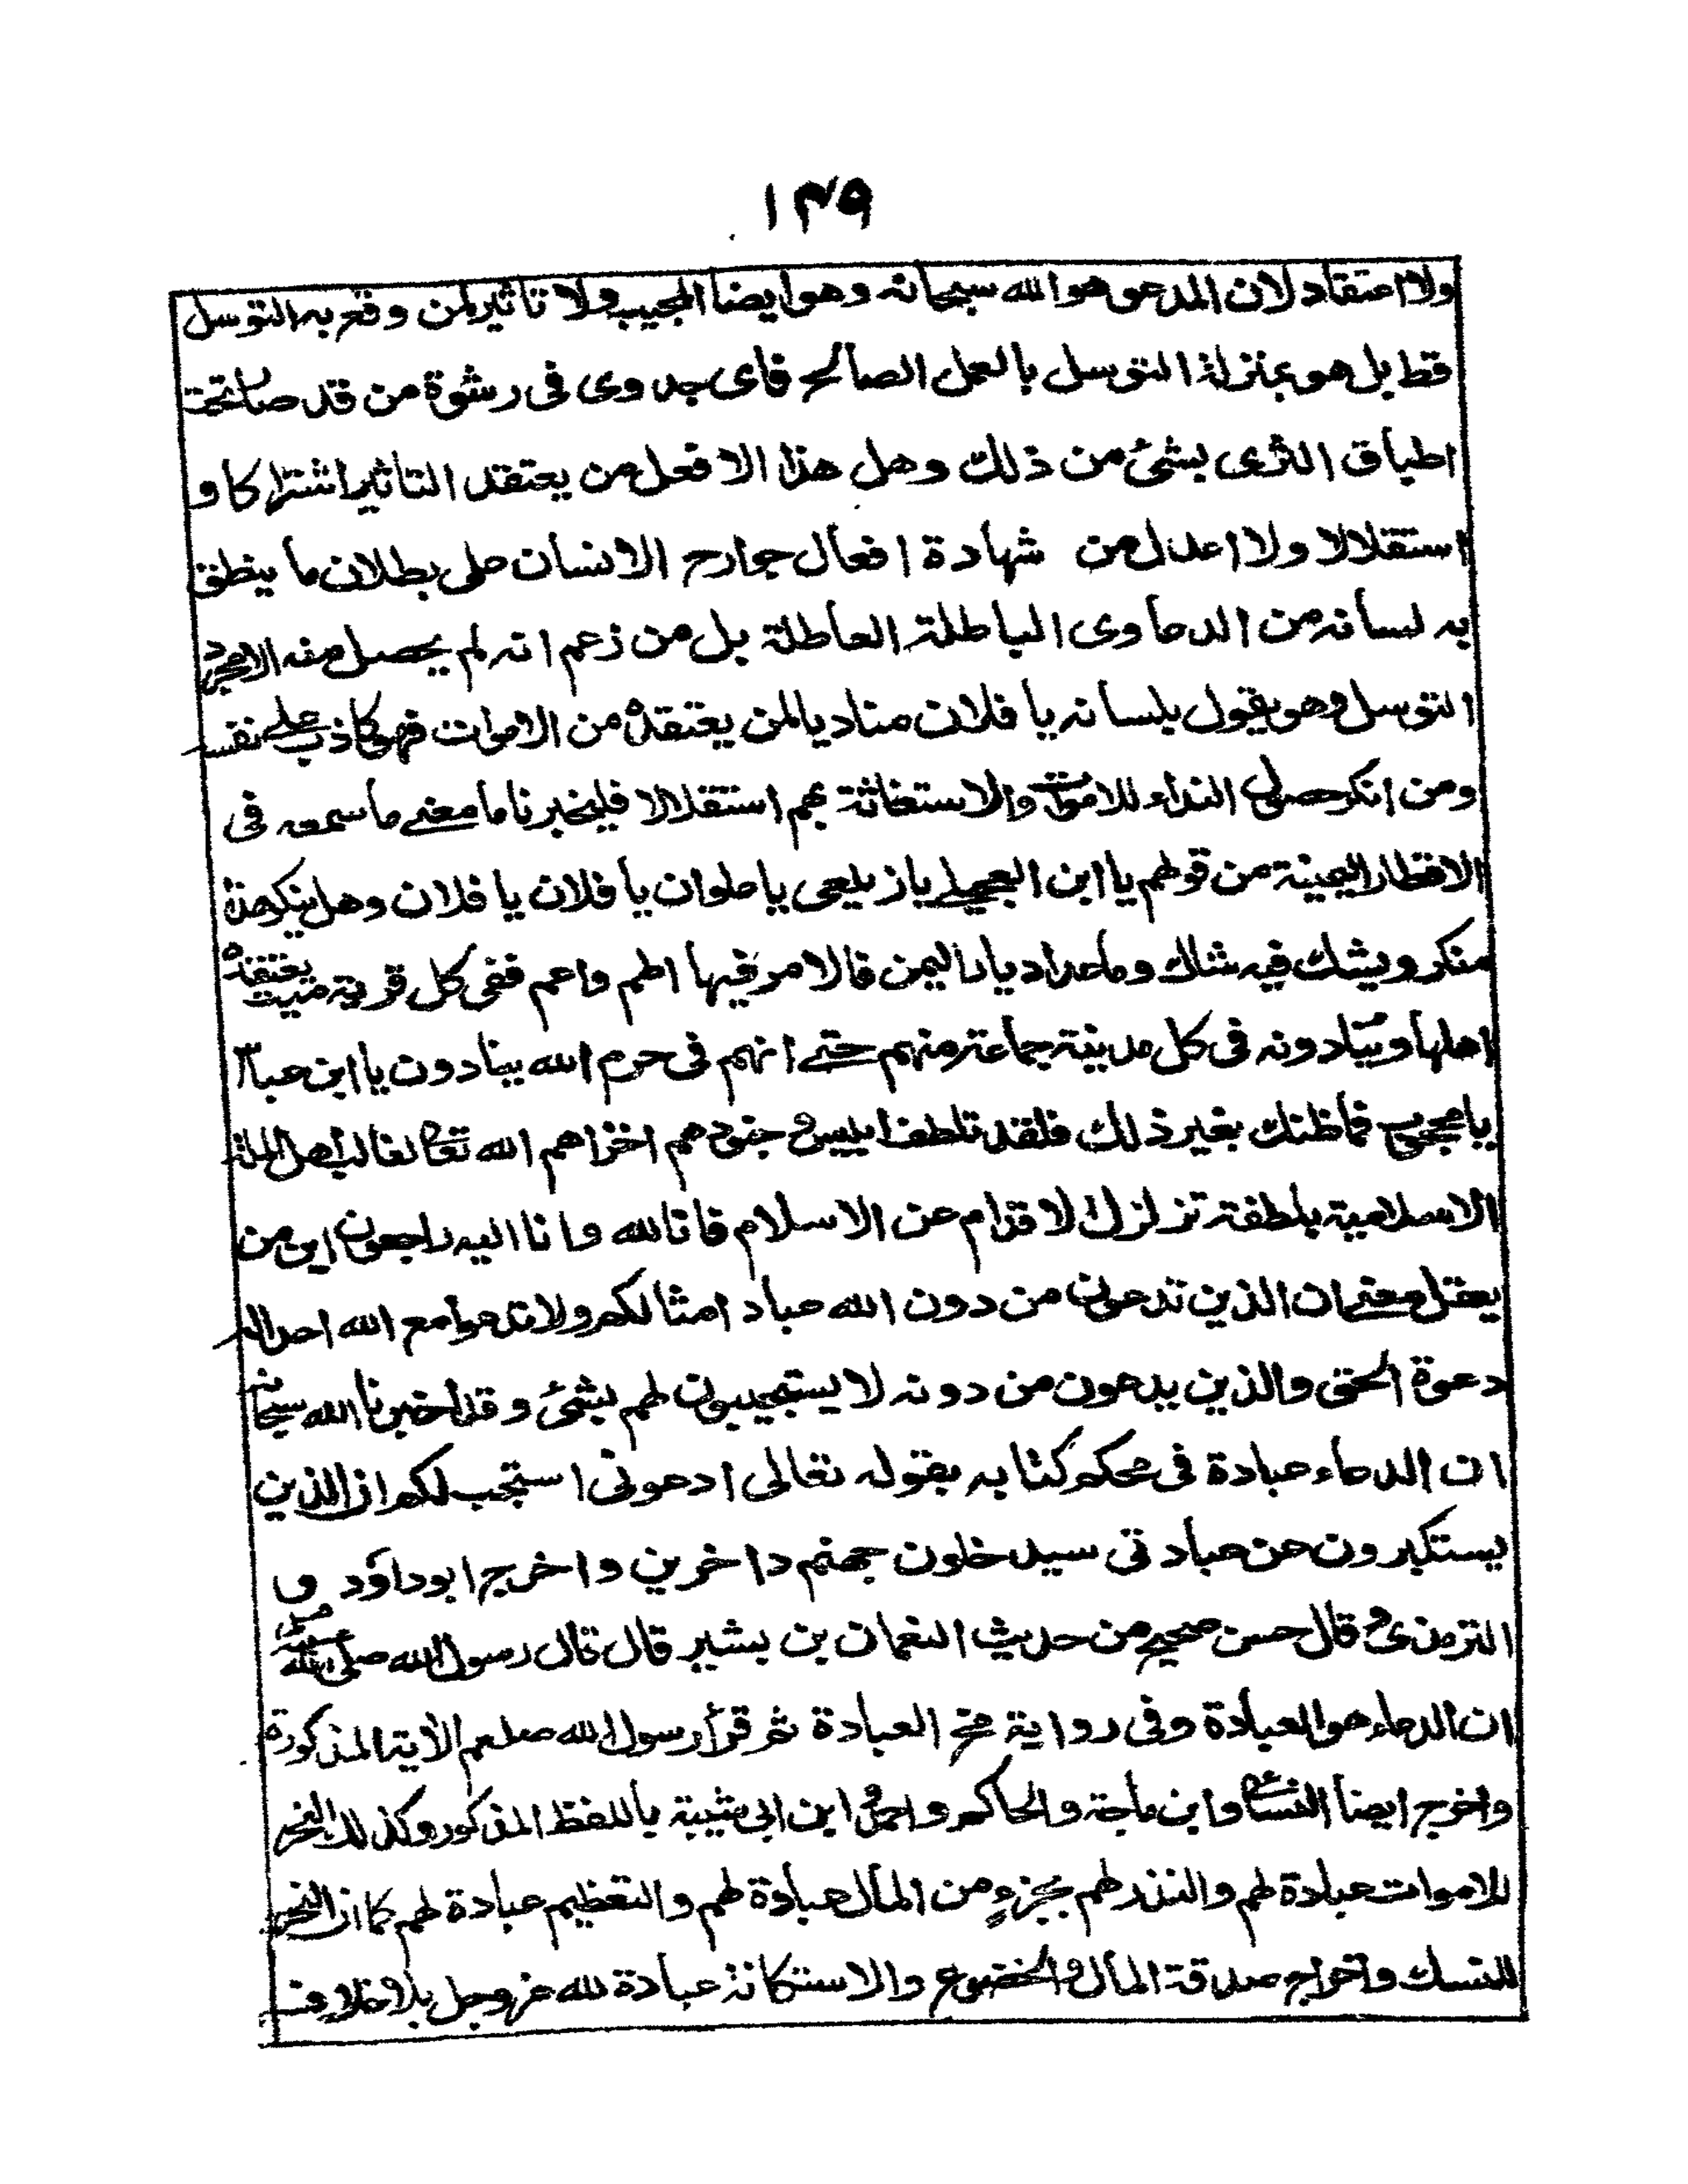 ۱۴۹
ولا اعتقاد لان المدعو هو الله سبحانه وهو ايضا المجيب ولا تاثير لمن وقع به التوسل
قط بل هو بمنزلة التوسل بالعمل الصالح فاى جدوى فى رشوة من قد صار تحت
اطباق الثرى بشئ من ذلك وهل هذا الا فعل من يعتقد التاثير اشتراكا و
استقلالا ولا اعدل من شهادة افعال جوارح الانسان على بطلان ما ينطق
به لسانه من الدعاوى الباطلة العاطلة بل من زعم انه لم يحصل منه الا مجرد
التوسل وهو يقول بلسانه يا فلان مناديا لمن يعتقده من الاموات فهو كاذب على نفسه
ومن انكر حصول النداء للاموات والاستغاثة بهم استقلالا فليخبرنا ما معنى ما سمعه فى
الاقطار اليمينة من قولهم يا ابن العجيل يا زيلعى يا علوان يا فلان يا فلان وهل ينكر هذا
منكر ويشك فيه شاك وما عدا ديارنا اليمن فالامر فيها اطم واعم ففى كل قرية ميت يعتقده
اهلها وينادونه فى كل مدينة جماعة منهم حتى انهم فى حرم الله ينادون يا ابن عباس
يا محجوب فما ظنك بغير ذلك فلقد تلطف ابليس وجنوده اخزاهم الله تعالى لغالب اهل الملة
الاسلامية بلطفة تزلزل الاقدام عن الاسلام فانا لله وانا اليه راجعون اين من
يعقل معنى ان الذين تدعون من دون الله عباد امثالكم ولا تدعوا مع الله احدا له
دعوة الحق والذين يدعون من دونه لا يستجيبون لهم بشئ وقد اخبرنا الله سبحانه
ان الدعاء عبادة فى محكم كتابه بقوله تعالى ادعونى استجب لكم ان الذين
يستكبرون عن عبادتى سيدخلون جهنم داخرين واخرج ابو داؤد و
الترمذى وقال حسن صحيح من حديث النعمان بن بشير قال قال رسول الله صلى الله عليه وسلم
ان الدعاء هو العبادة وفى رواية مخ العبادة ثم قرأ رسول الله صلعم الأية المذكورة
واخرج ايضا النسائى وابن ماجة والحاكم واحمد وابن ابى شيبة باللفظ المذكور وكذلك النحر
للاموات عبادة لهم والنذر لهم بجزءٍ من المال عبادة لهم والتعظيم عبادة لهم كما ان النحر
للنسك واخراج صدقة المال والخضوع والاستكانة عبادة لله عز وجل بلا خلاف